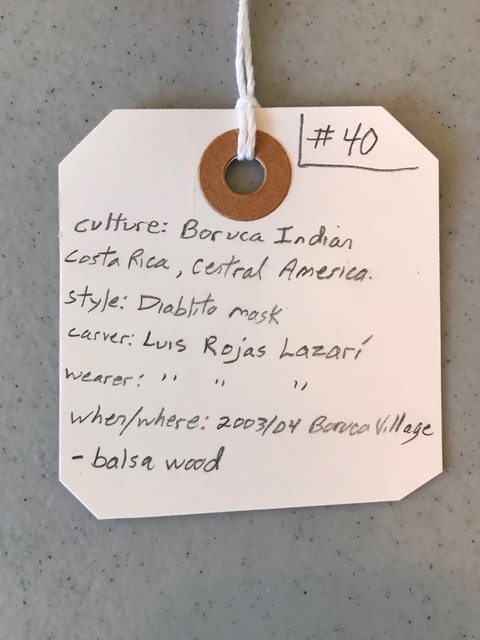 #40
culture: Boruca Indian
Costa Rica, Central America.
style: Diablito mask
carver: Luis Rojas Lazarí
wearer: " " "
when/where: 2003/04 Boruca Village
- balsa wood